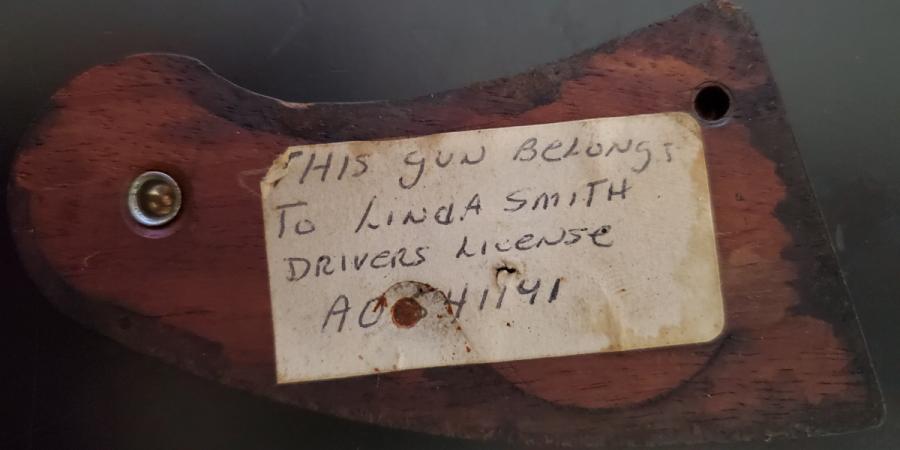 THIS gUN BELONgS
TO LINdA SMITH
DRIVERS LICENSe